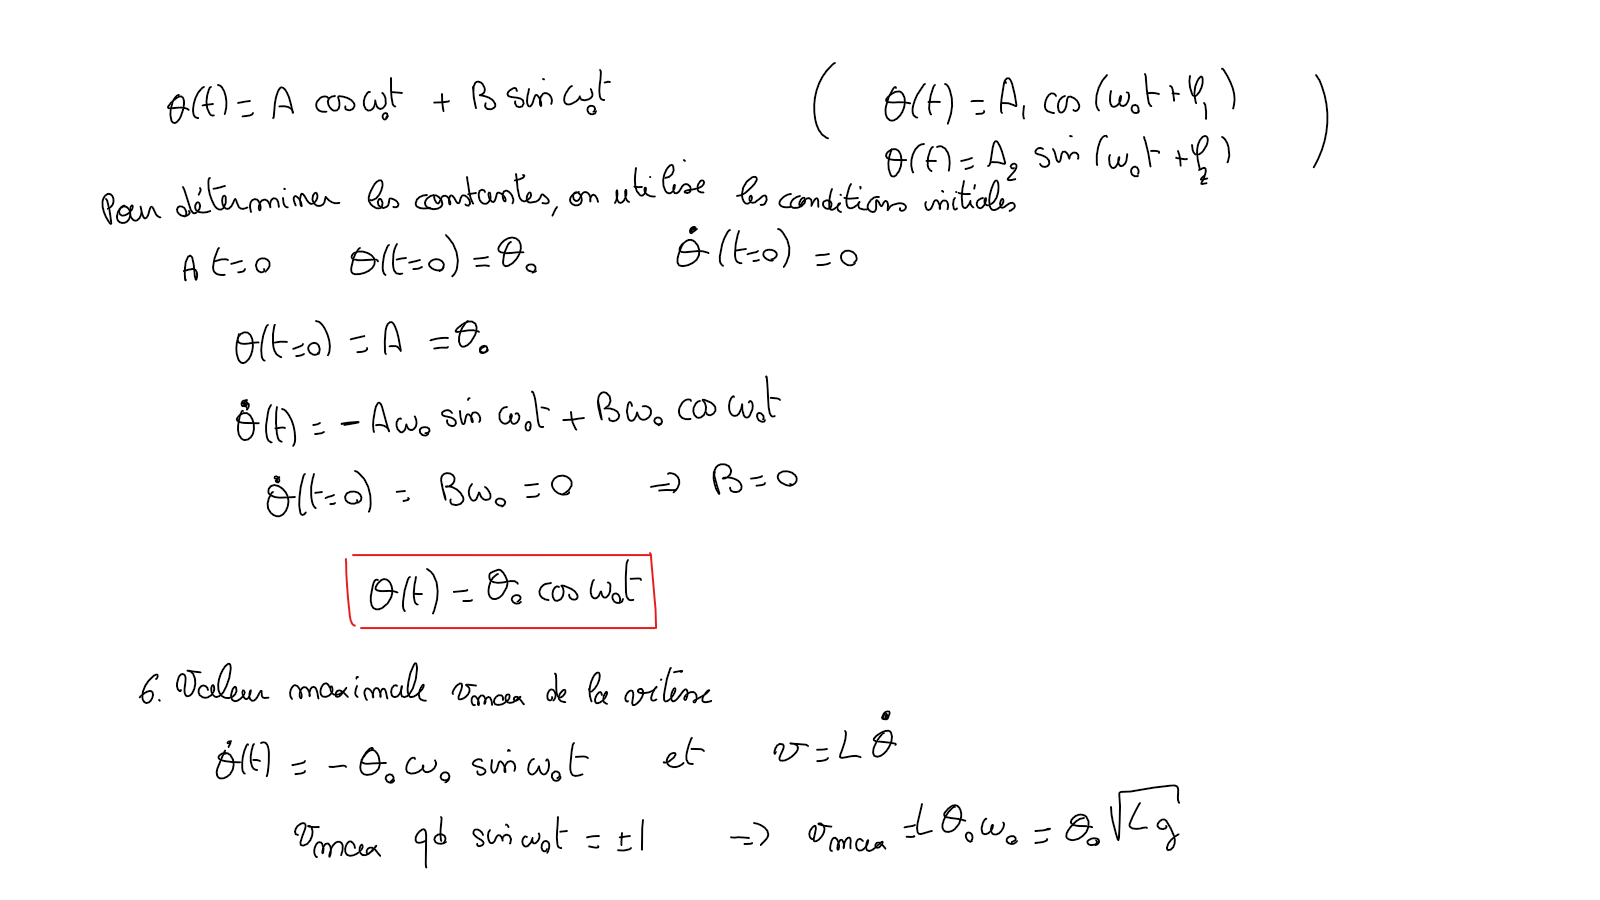 θ(t) = A cos ω₀t + B sin ω₀t ( θ(t) = A₁ cos (ω₀t + φ₁)
θ(t) = A₂ sin (ω₀t + φ₂) )
Pour déterminer les constantes, on utilise les conditions initiales
A t=0 θ(t=0) = θ₀ θ̇(t=0) = 0
θ(t=0) = A = θ₀
θ̇(t) = - Aω₀ sin ω₀t + Bω₀ cos ω₀t
θ̇(t=0) = Bω₀ = 0 ⇒ B = 0
θ(t) = θ₀ cos ω₀t
6. Valeur maximale vmax de la vitesse
θ̇(t) = - θ₀ω₀ sin ω₀t et v = L θ̇
vmax qd sin ω₀t = ±1 ⇒ vmax = Lθ₀ω₀ = θ₀√(Lg)